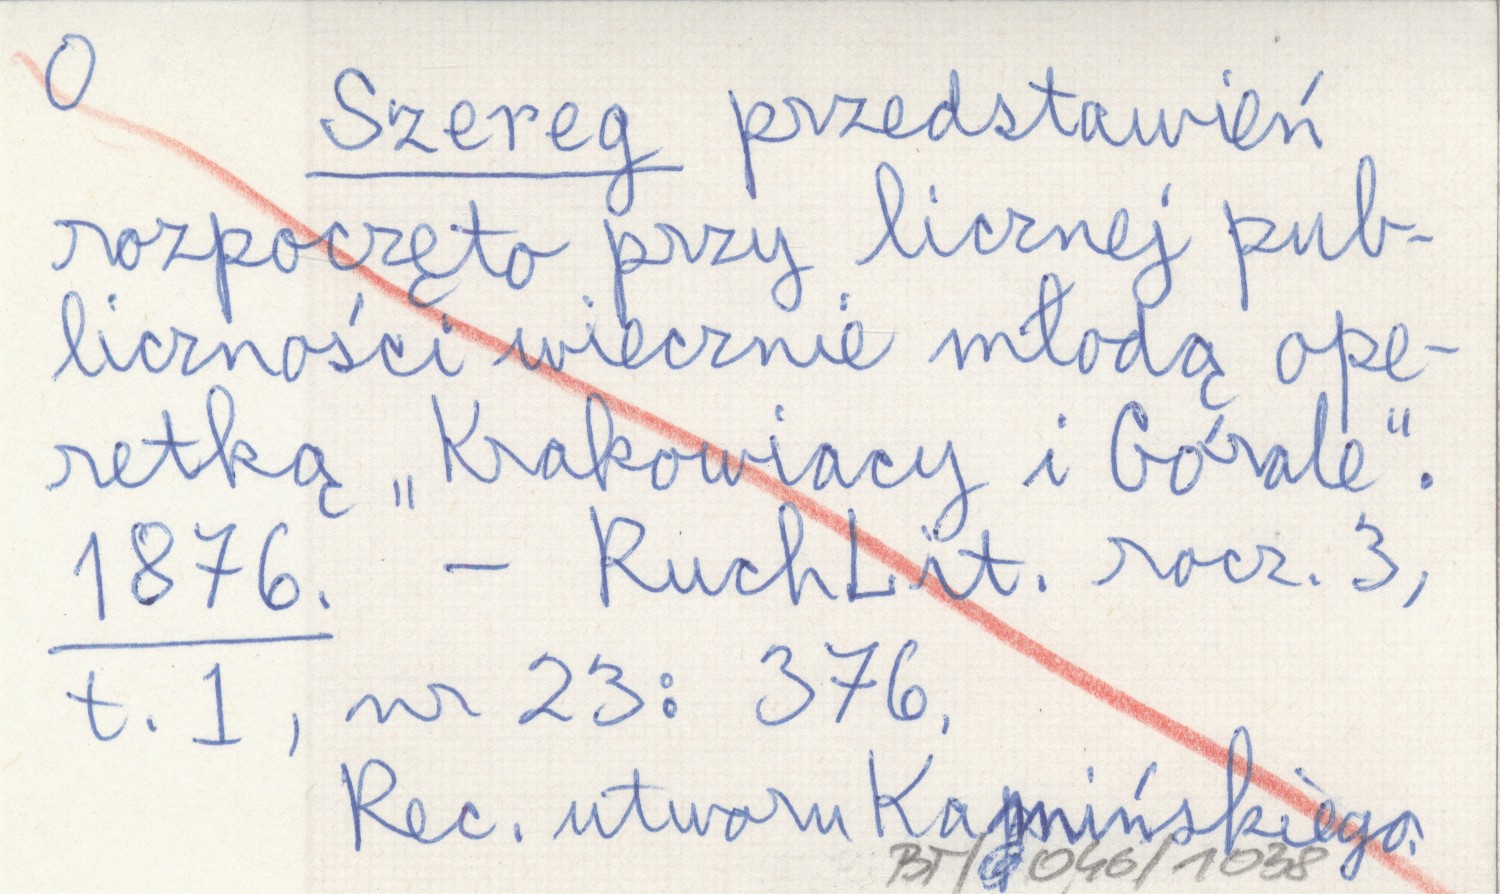 0
Szereg przedstawień
rozpoczęto przy licznej pub-
liczności wiecznie młodą ope-
retką „Krakowiacy i Górale".
1876. - RuchLit. rocz. 3,
t. 1, nr 23: 376.
Rec. utworu Kamińskiego.
1038